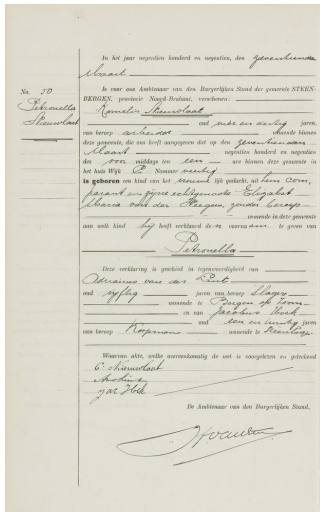 In het jaar negentien honderd en negentien, den zeventienden
Maart
is voor ons Ambtenaar van den Burgerlijken Stand der gemeente STEEN-
BERGEN, provincie Noord-Brabant, verschenen:
No. 50.
Petronella
Nieuwlaat
Kornelis Nieuwlaat
oud vier en dertig jaren,
van beroep arbeider wonende binnen
deze gemeente, die ons heeft aangegeven dat op den zeventienden
Maart negentien honderd en negentien
des voor middags ten een ure binnen deze gemeente in
het huis Wijk Nummer veertig
is geboren een kind van het vrouwelijk geslacht, uit hem com-
parant en zijne echtgenoote Elizabet
Maria van der zonder beroep
wonende in deze gemeente
aan welk kind hij heeft verklaard de voornaam te geven van
Petronella
Deze verklaring is geschied in tegenwoordigheid van
Adrianus van der
oud vijftig jaren van beroep Slager
wonende te Bergen op Zoom
en van Jacobus Hock
oud een en jaren
van beroep Koopman wonende te
Waarvan akte, welke overeenkomstig de wet is voorgelezen en geteekend
C. Nieuwlaat
Jac Hock
De Ambtenaar van den Burgerlijken Stand,